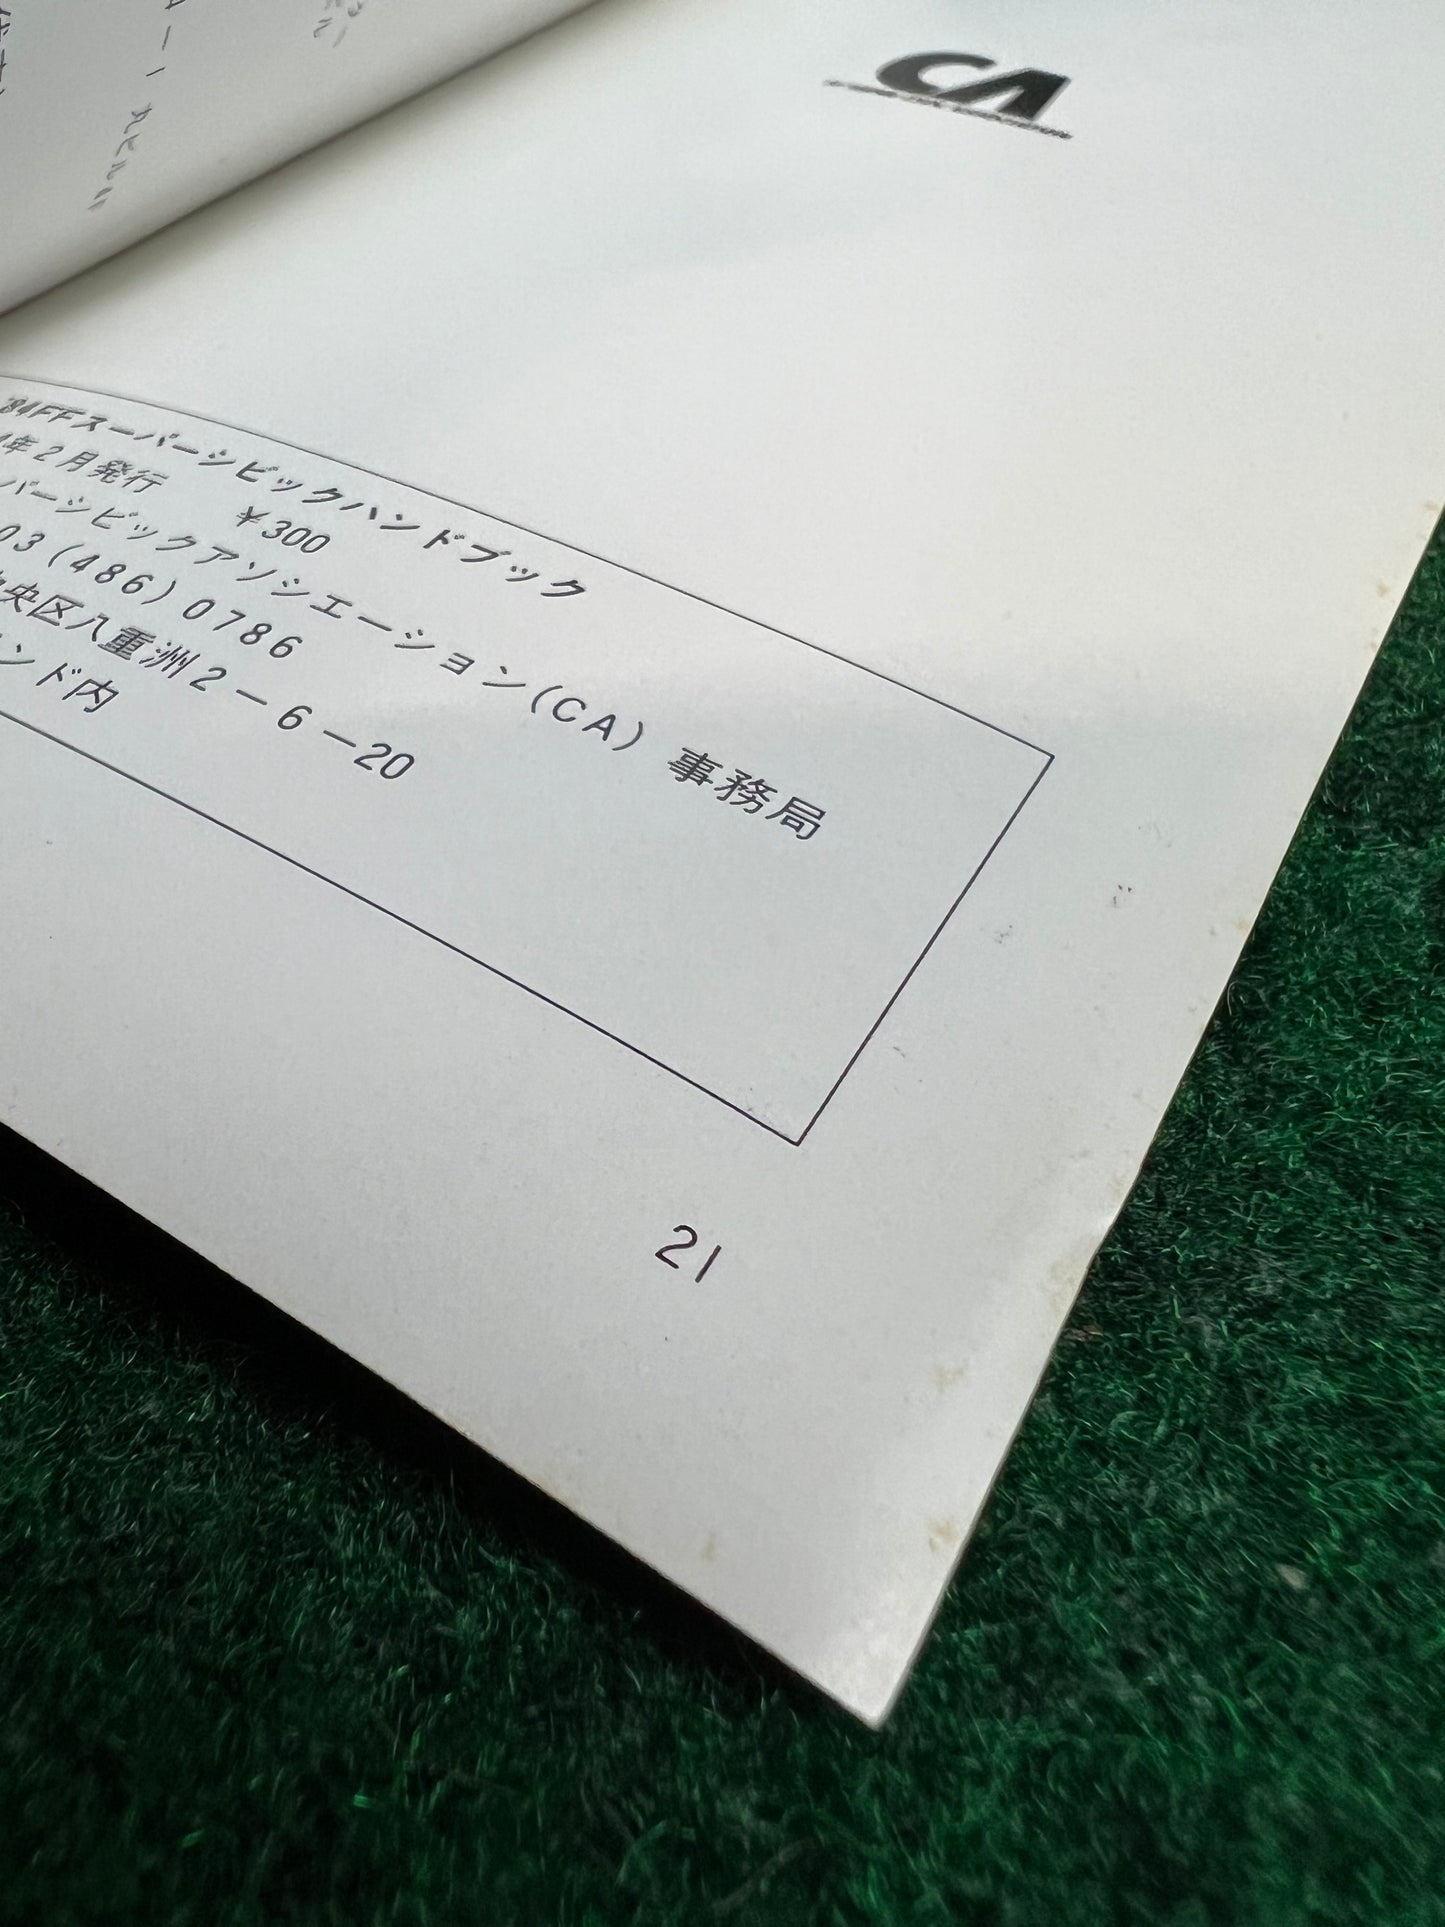 CA
'84FFスーパーシビックハンドブック
年2月発行 ¥300
パーシビックアソシエーション(CA) 事務局
03(486)0786
央区八重洲2-6-20
ンド内
21